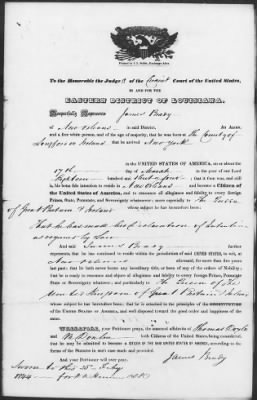 To the Honorable the Judges of the Circuit Court of the United States,
IN AND FOR THE
EASTERN DISTRICT OF LOUISIANA.
Respectfully Represents James Brady
of New Orleans in said District, for Aaron,
and a free white person, and of the age of majority, that he was born at The County of
Longford in Ireland that he arrived New York
in the UNITED STATES OF AMERICA, on or about the
17th day of March in the year of our Lord
Eighteen hundred and thirty four and still
is, his bona fide intention to reside in New Orleans and become a Citizen of
the United States of America, and to renounce all allegiance and fidelity to every foreign
Prince, State, Potentate, and Sovereignty whatsoever; more especially to The Queen
of Great Britain & Ireland whose subject he has heretofore been;
That he has made his declaration of intention
as required by Law
And said James Brady further
represents, that he has continued to reside within the jurisdiction of said UNITED STATES, as well, as
New Orleans aforesaid, for more than five years
last past; that he hath never borne any hereditary title, or been of any of the orders of Nobility;
that he is ready to renounce and abjure all allegiance and fidelity to every foreign Prince, Potentate
State or Sovereignty whatsoever; particularly to The Queen of the
United Kingdom of Great Britain & Ireland
whose subject he has heretofore been; that he is attached to the principles of the CONSTITUTION
of the United States of America, and well disposed toward the good order and happiness of the
same.
WHEREFORE, your Petitioner prays, the examination of Thomas Doyle
and
both Citizens of the United States, being considered,
that he may be admitted to become a CITIZEN OF THE UNITED STATES OF AMERICA, according to the
forms of the Statutes in such case made and provided.
And your Petitioner will ever pray, &c.
James Brady
Sworn to this 25th July
1844